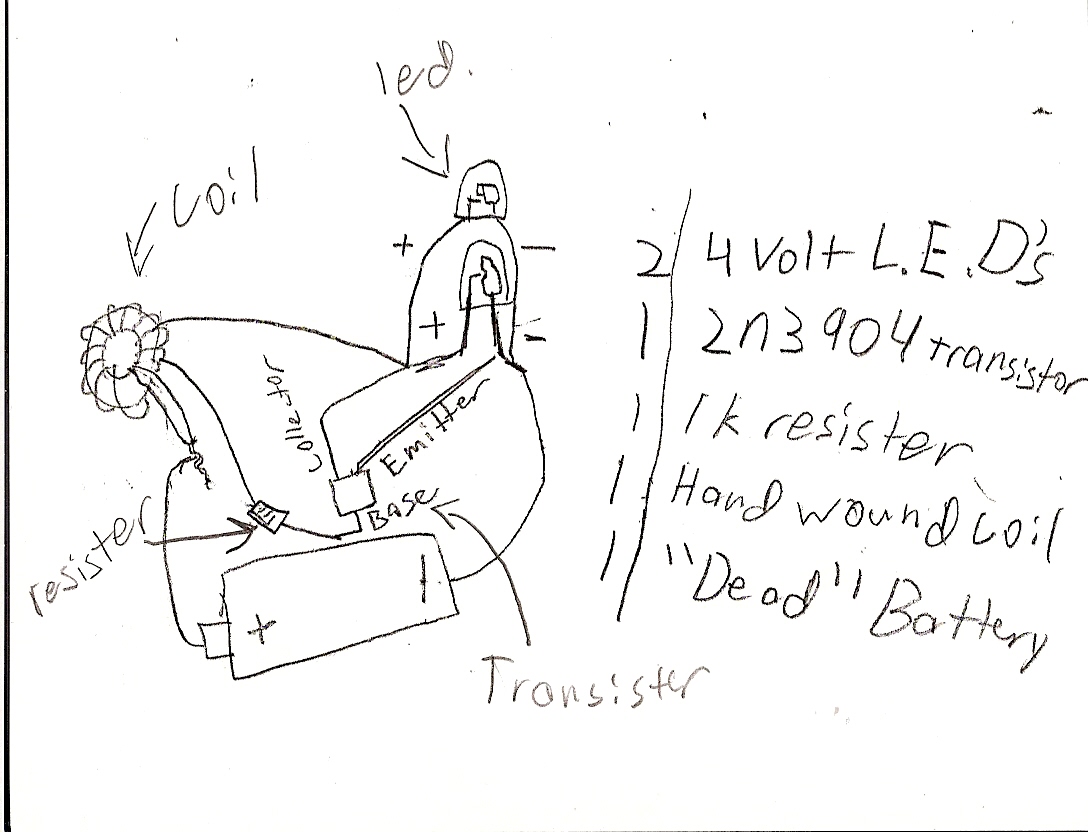 led.
coil
+ -
+ -
collector
Emitter
Base
resister
+ -
Transister
2 4 volt L.E.D's
1 2n3904 transistor
1 1k resister
1 Hand wound coil
1 "Dead" Battery